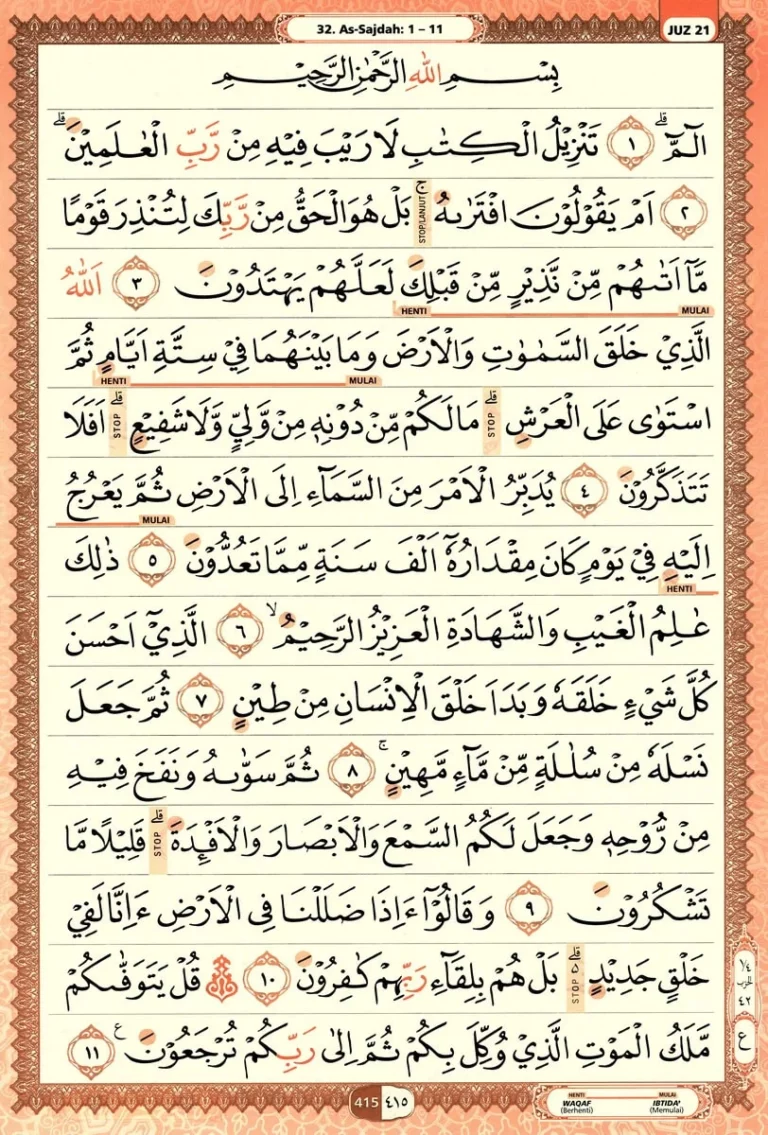 32. As-Sajdah: 1 – 11
JUZ 21
بِسْمِ اللّٰهِ الرَّحْمٰنِ الرَّحِيْمِ
الۤمّۤ ۗ ١ تَنْزِيْلُ الْكِتٰبِ لَا رَيْبَ فِيْهِ مِنْ رَّبِّ الْعٰلَمِيْنَ ۗ
٢ اَمْ يَقُوْلُوْنَ افْتَرٰىهُ ۚ بَلْ هُوَ الْحَقُّ مِنْ رَّبِّكَ لِتُنْذِرَ قَوْمًا
STOP/LANJUT
مَّآ اَتٰىهُمْ مِّنْ نَّذِيْرٍ مِّنْ قَبْلِكَ لَعَلَّهُمْ يَهْتَدُوْنَ ٣ اَللّٰهُ
HENTI MULAI
الَّذِيْ خَلَقَ السَّمٰوٰتِ وَالْاَرْضَ وَمَا بَيْنَهُمَا فِيْ سِتَّةِ اَيَّامٍ ثُمَّ
HENTI MULAI
اسْتَوٰى عَلَى الْعَرْشِ ۗ مَا لَكُمْ مِّنْ دُوْنِهٖ مِنْ وَّلِيٍّ وَّلَا شَفِيْعٍ ۗ اَفَلَا
STOP STOP
تَتَذَكَّرُوْنَ ٤ يُدَبِّرُ الْاَمْرَ مِنَ السَّمَاۤءِ اِلَى الْاَرْضِ ثُمَّ يَعْرُجُ
MULAI
اِلَيْهِ فِيْ يَوْمٍ كَانَ مِقْدَارُهٗٓ اَلْفَ سَنَةٍ مِّمَّا تَعُدُّوْنَ ٥ ذٰلِكَ
HENTI
عٰلِمُ الْغَيْبِ وَالشَّهَادَةِ الْعَزِيْزُ الرَّحِيْمُ ۙ ٦ الَّذِيْٓ اَحْسَنَ
كُلَّ شَيْءٍ خَلَقَهٗ وَبَدَاَ خَلْقَ الْاِنْسَانِ مِنْ طِيْنٍ ٧ ثُمَّ جَعَلَ
نَسْلَهٗ مِنْ سُلٰلَةٍ مِّنْ مَّاۤءٍ مَّهِيْنٍ ۚ ٨ ثُمَّ سَوّٰىهُ وَنَفَخَ فِيْهِ
مِنْ رُّوْحِهٖ وَجَعَلَ لَكُمُ السَّمْعَ وَالْاَبْصَارَ وَالْاَفْـِٕدَةَ ۗ قَلِيْلًا مَّا
STOP
تَشْكُرُوْنَ ٩ وَقَالُوْٓا ءَاِذَا ضَلَلْنَا فِى الْاَرْضِ ءَاِنَّا لَفِيْ
خَلْقٍ جَدِيْدٍ ۗ ۵ بَلْ هُمْ بِلِقَاۤءِ رَبِّهِمْ كٰفِرُوْنَ ١٠ قُلْ يَتَوَفّٰىكُمْ
STOP
مَّلَكُ الْمَوْتِ الَّذِيْ وُكِّلَ بِكُمْ ثُمَّ اِلٰى رَبِّكُمْ تُرْجَعُوْنَ ࣖ ١١
١/٤
الحزب
٤٢
ع
415 ٤١٥
HENTI MULAI
WAQAF IBTIDA'
(Berhenti) (Memulai)